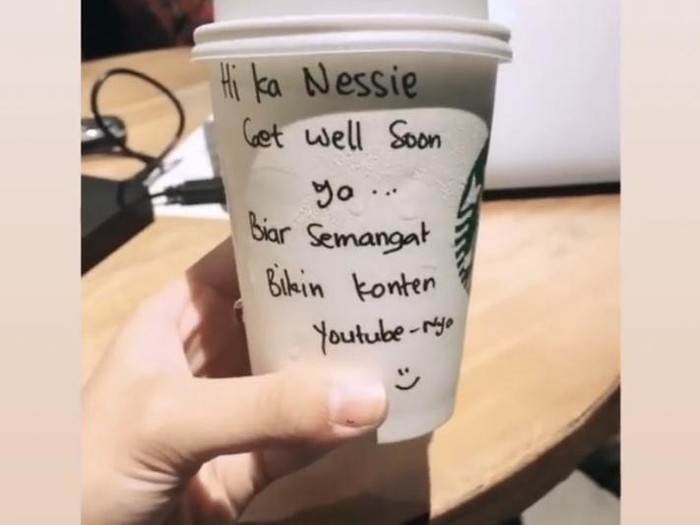 Hi ka Nessie
Get well Soon
ya ...
Biar Semangat
Bikin konten
Youtube-Nya